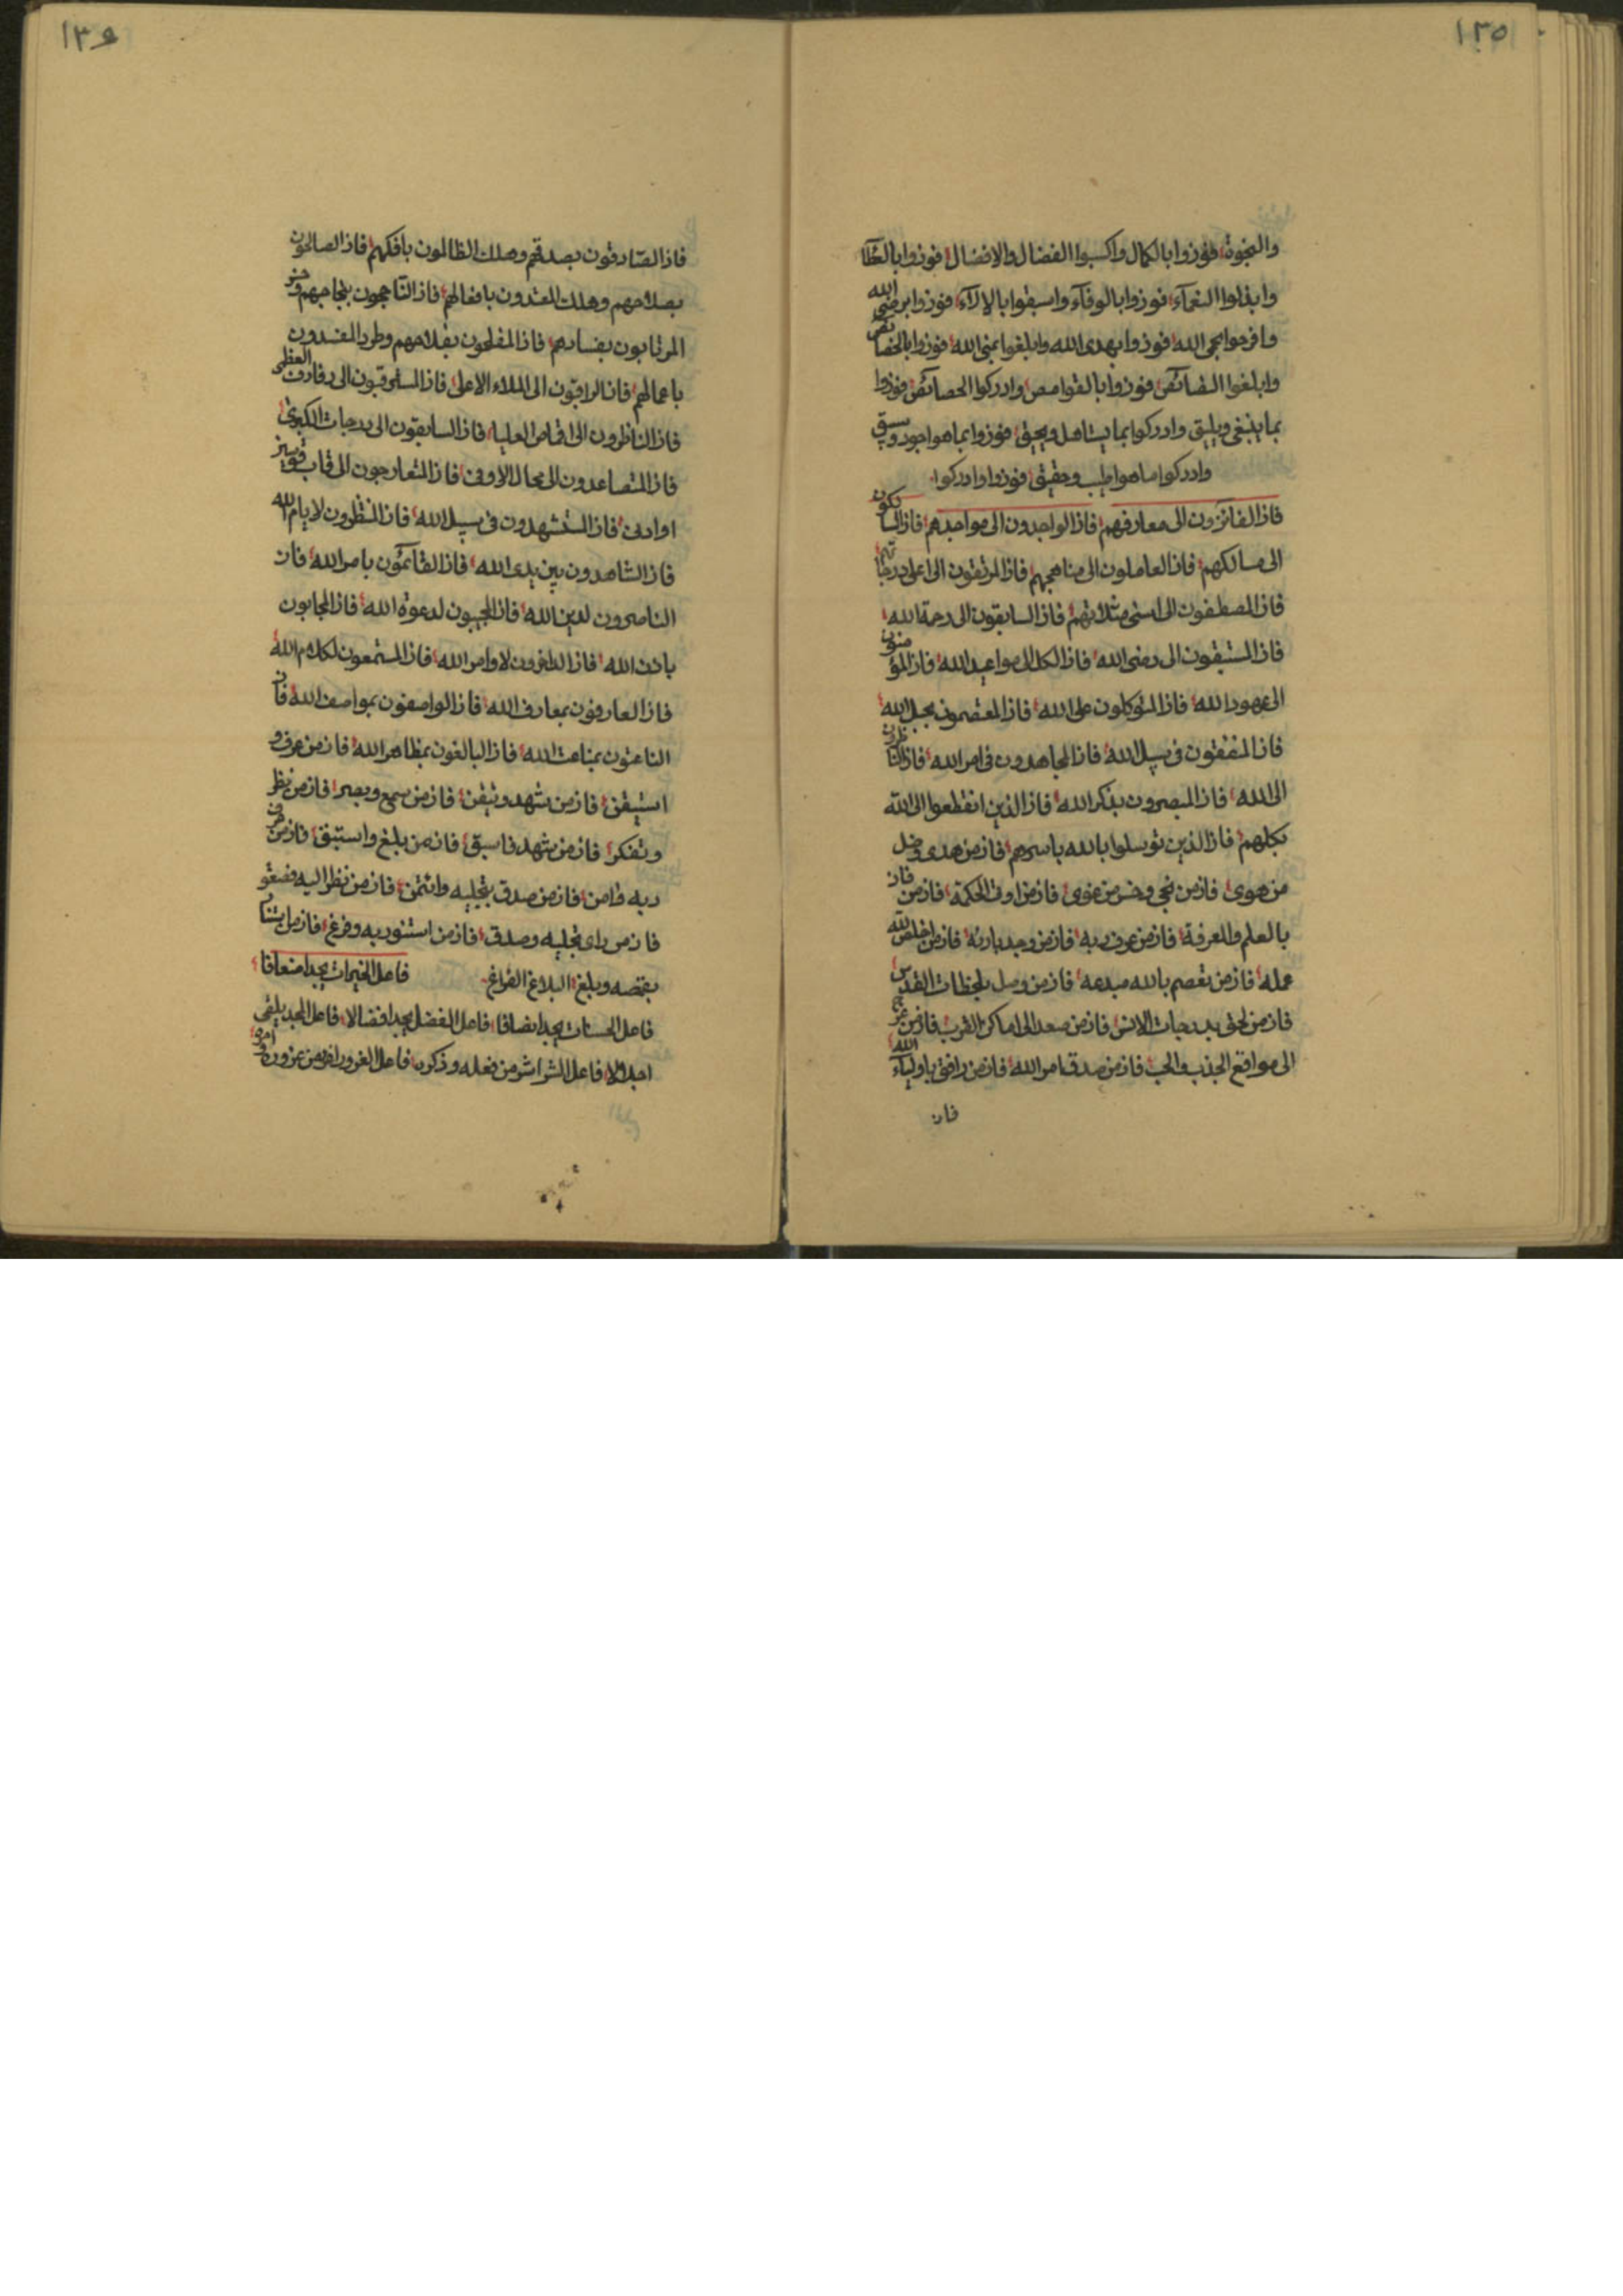 ١٣٥
والنجوة فوزوا بالكمال واكسبوا الفضال والافضال فوزوا بالعطآء
وابذلوا النعمآء فوزوا بالوفآء واسبقوا بالالآء فوزوا برضى الله
وافرحوا الله فوزوا بهدى الله وابلغوا بمنى الله فوزوا بالخصائص
وابلغوا فوزوا وادركوا الخصائص فوزوا
بما ينبغى ويليق وادركوا بما يستاهل ويحق فوزوا بما هو اجود
وادركوا ما هو اطيب وحقيق فوزوا وادركوا
فاز الفائزون الى معارفهم فاز الواجدون الى مواجدهم فاز السالكون
الى مسالكهم فاز العاملون الى مناهجهم فاز المرتقون الى اعلى درجاتهم
فاز المصطفون الى اسنى فاز السابقون الى رحمة الله
فاز المستبقون الى رضى الله فاز الكل الى مواعيد الله فاز المؤمنون
الى عهود الله فاز المتوكلون على الله فاز المعتصمون بحبل الله
فاز المنفقون فى سبيل الله فاز المجاهدون فى امر الله فاز الناظرون
الى الله فاز المبصرون بذكر الله فاز الذين انقطعوا الى الله
بكلهم فاز الذين توسلوا بالله باسرهم فاز من هدى وضل
من هوى فاز من نجى وخسر من غوى فاز من اوتى الحكمة فاز من فاز
بالعلم والمعرفة فاز من عرف ربه فاز من وجد بارئه فاز من اخلص لله
عمله فاز من تعصم بالله مبدعه فاز من وصل بلحظات القدس
فاز من لحق بدرجات الانس فاز من صعد الى اماكن القرب فاز من عرج
الى مواقع الجذب والحب فاز من صدق امر الله فاز من رافق باوليآء الله
فاز
١٣٦
فاز الصادقون بصدقهم وهلك الظالمون بافكهم فاز الصالحون
بصلاحهم وهلك المعتدون بافعالهم فاز الناجحون بنجاحهم وخسر
المرتابون بفسادهم فاز المفلحون بفلاحهم وطرد المفسدون
باعمالهم فاز الراقون الى الملاء الاعلى فاز المسترقون الى رفارف العظمى
فاز الناظرون الى العليا فاز السابقون الى درجات الكبرى
فاز المتصاعدون الى محال الاوفى فاز المتعارجون الى قاب قوسين
او ادنى فاز المستشهدون فى سبيل الله فاز المنتظرون لايام الله
فاز الشاهدون بين يدى الله فاز القائمون بامر الله فاز
الناصرون لدين الله فاز المجيبون لدعوة الله فاز المجابون
باذن الله فاز الناظرون لاوامر الله فاز المستمعون لكلام الله
فاز العارفون بمعارف الله فاز الواصفون بمواصف الله فاز
الناعتون بمناعت الله فاز البالغون بمظاهر الله فاز من عرف و
استيقن فاز من شهد وتيقن فاز من سمع وبصر فاز من نظر
وتفكر فاز من شهد فاسبق فاز من بلغ واستبق فاز من عرف
ربه وامن فاز من صدق بتجليه وائتمن فاز من نظر اليه
فاز من راى تجليه وصدق فاز من استنور به وفرغ فاز من استنار
بقمصه وبلغ البلاغ الفراغ فاعل الخيرات يجد اضعافا
فاعل الحسنات يجد انصافا فاعل الفضل يجد افضالا فاعل المجد يلقى
اجلالا فاعل الشر اشر من فعله وذكره فاعل الغرور اضر من غروره وامره